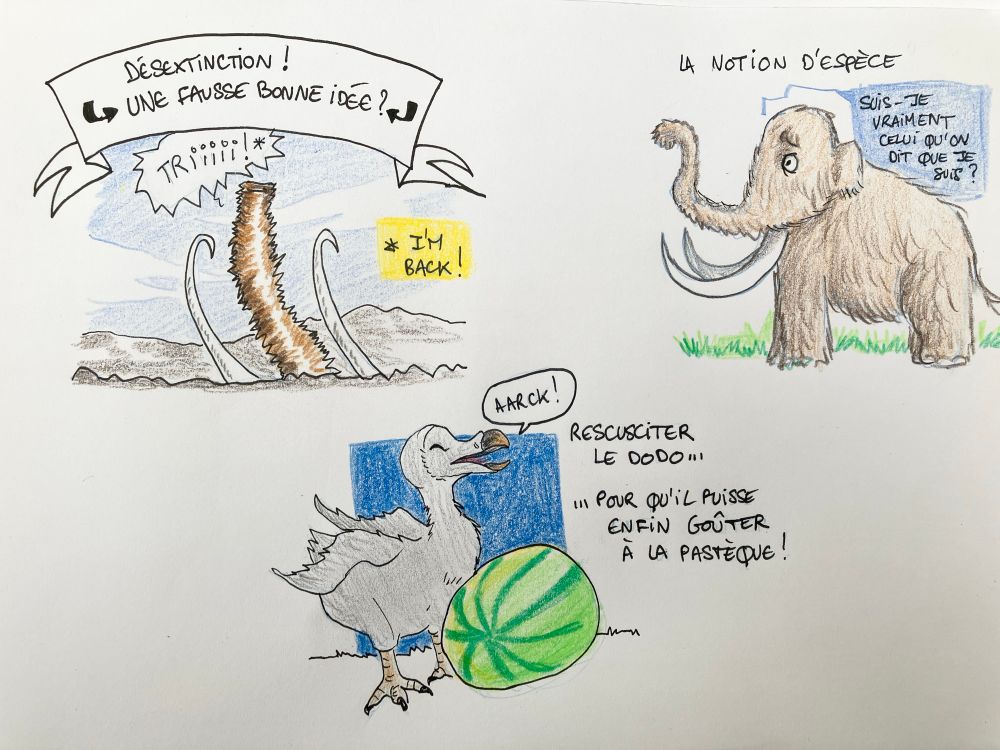 DÉSEXTINCTION !
UNE FAUSSE BONNE IDÉE ?
TRiiiii! *
* I'M
BACK !
LA NOTION D'ESPÈCE
SUIS-JE
VRAIMENT
CELUI QU'ON
DIT QUE JE
SUIS ?
AARCK !
RESCUSCITER
LE DODO...
... POUR QU'IL PUISSE
ENFIN GOÛTER
À LA PASTÈQUE !